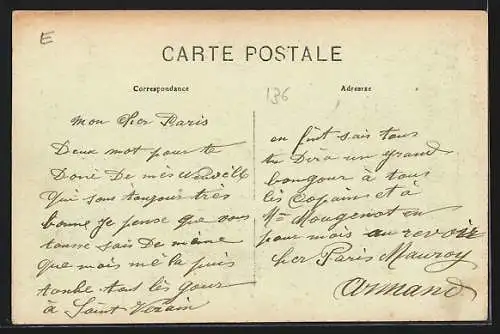 E
CARTE POSTALE
Correspondance
Adresse
136
mon cher Paris
Deux mot pour te
Doné De mes nouvelle
Qui sont toujour très
bonne Je pense que vous
tousse sais De même
que mois me la puis
tonbe tout les jour
à Saint Verain
en fût sais tous
tu Dira un grand
bongour à tous
les Copains et à
Mme Mougenot en
pour mois au revoir
cher Paris Mauroy
Armand